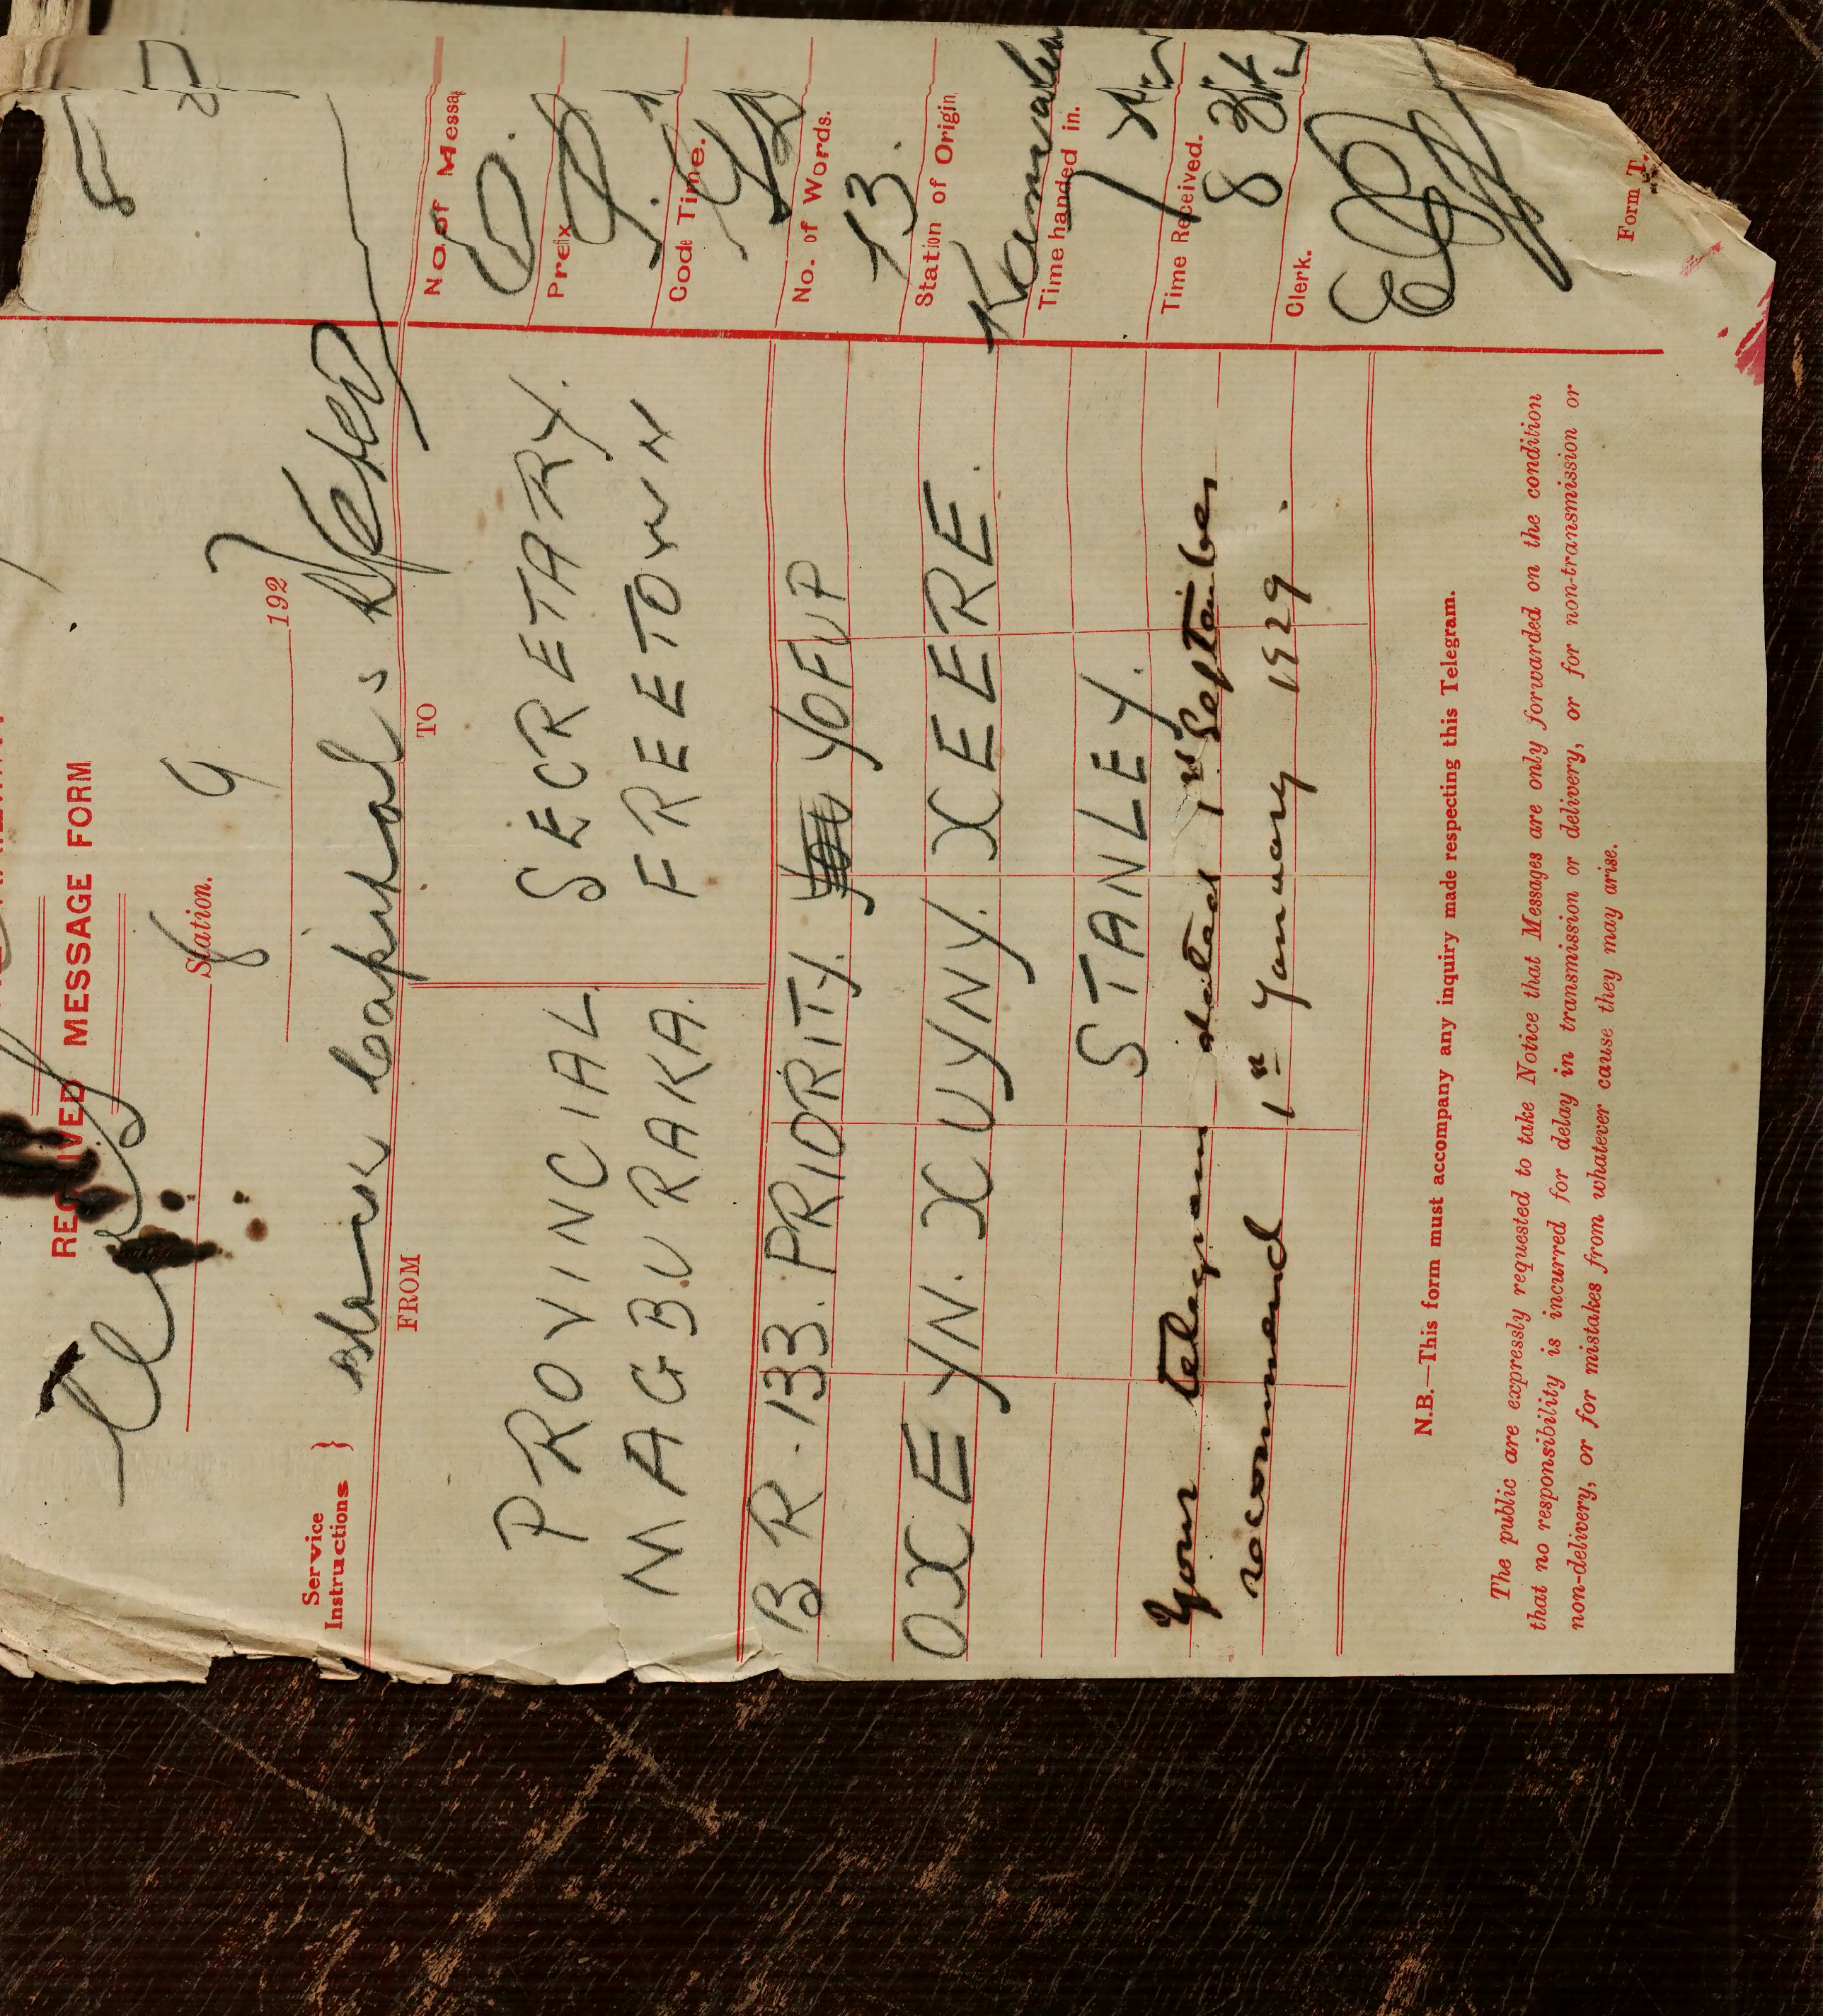 RECEIVED MESSAGE FORM
Station.
8 9 7
192
Service
Instructions }
block capitals
FROM TO
PROVINCIAL SECRETARY.
MAGBURAKA. FREETOWN
BR. 133. PRIORITY. YOFUP
OXEYN. XUYNY. XEERE.
STANLEY.
Your telegram dated 1st September
recommend 1st January 1929.
No. of Messa
Prefix
Code Time.
No. of Words.
13.
Station of Origin
Time handed in.
7
Time Received.
8
Clerk.
N.B.—This form must accompany any inquiry made respecting this Telegram.
The public are expressly requested to take Notice that Messages are only forwarded on the condition
that no responsibility is incurred for delay in transmission or delivery, or for non-transmission or
non-delivery, or for mistakes from whatever cause they may arise.
Form T.